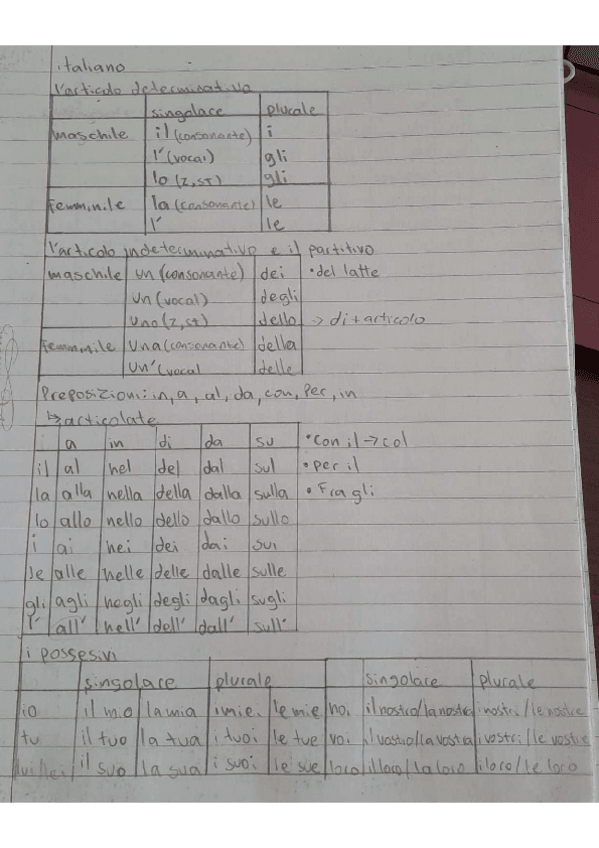 italiano
l'articolo determinativo
singolare plurale
maschile il (consonante) i
l' (vocal) gli
lo (z, st) gli
femminile la (consonante) le
l' le
l'articolo indeterminativo e il partitivo
maschile un (consonante) dei • del latte
un (vocal) degli
uno (z, st) dello → di + articolo
femminile una (consonante) della
un' (vocal delle
Preposizioni: in, a, al, da, con, per, in
↳ articolate
a in di da su • con il → col
il al nel del dal sul • per il
la alla nella della dalla sulla • Fra gli
lo allo nello dello dallo sullo
i ai nei dei dai sui
le alle nelle delle dalle sulle
gli agli negli degli dagli sugli
l' all' nell' dell' dall' sull'
i possesivi
singolare plurale singolare plurale
io il mio la mia i miei le mie noi il nostro/la nostra i nostri/le nostre
tu il tuo la tua i tuoi le tue voi il vostro/la vostra i vostri/le vostre
lui/lei il suo la sua i suoi le sue loro il loro/la loro i loro/le loro